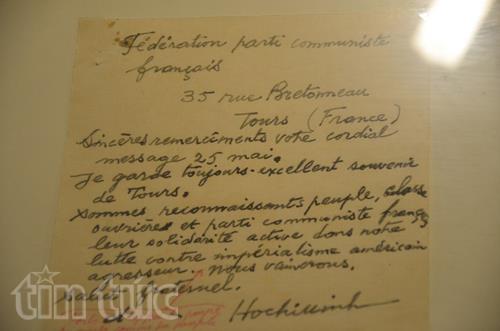 Fédération parti communiste
français
35 rue Bretonneau
Tours (France)
Sincères remerciments votre cordial
message 25 mai.
Je garde toujours excellent souvenir
de Tours.
Sommes reconnaissants peuple, classe
ouvrière et parti communiste français
leur solidarité active dans notre
lutte contre impérialisme américain
agresseur. Nous vaincrons.
Salut fraternel.
Hochiminh
tin tức